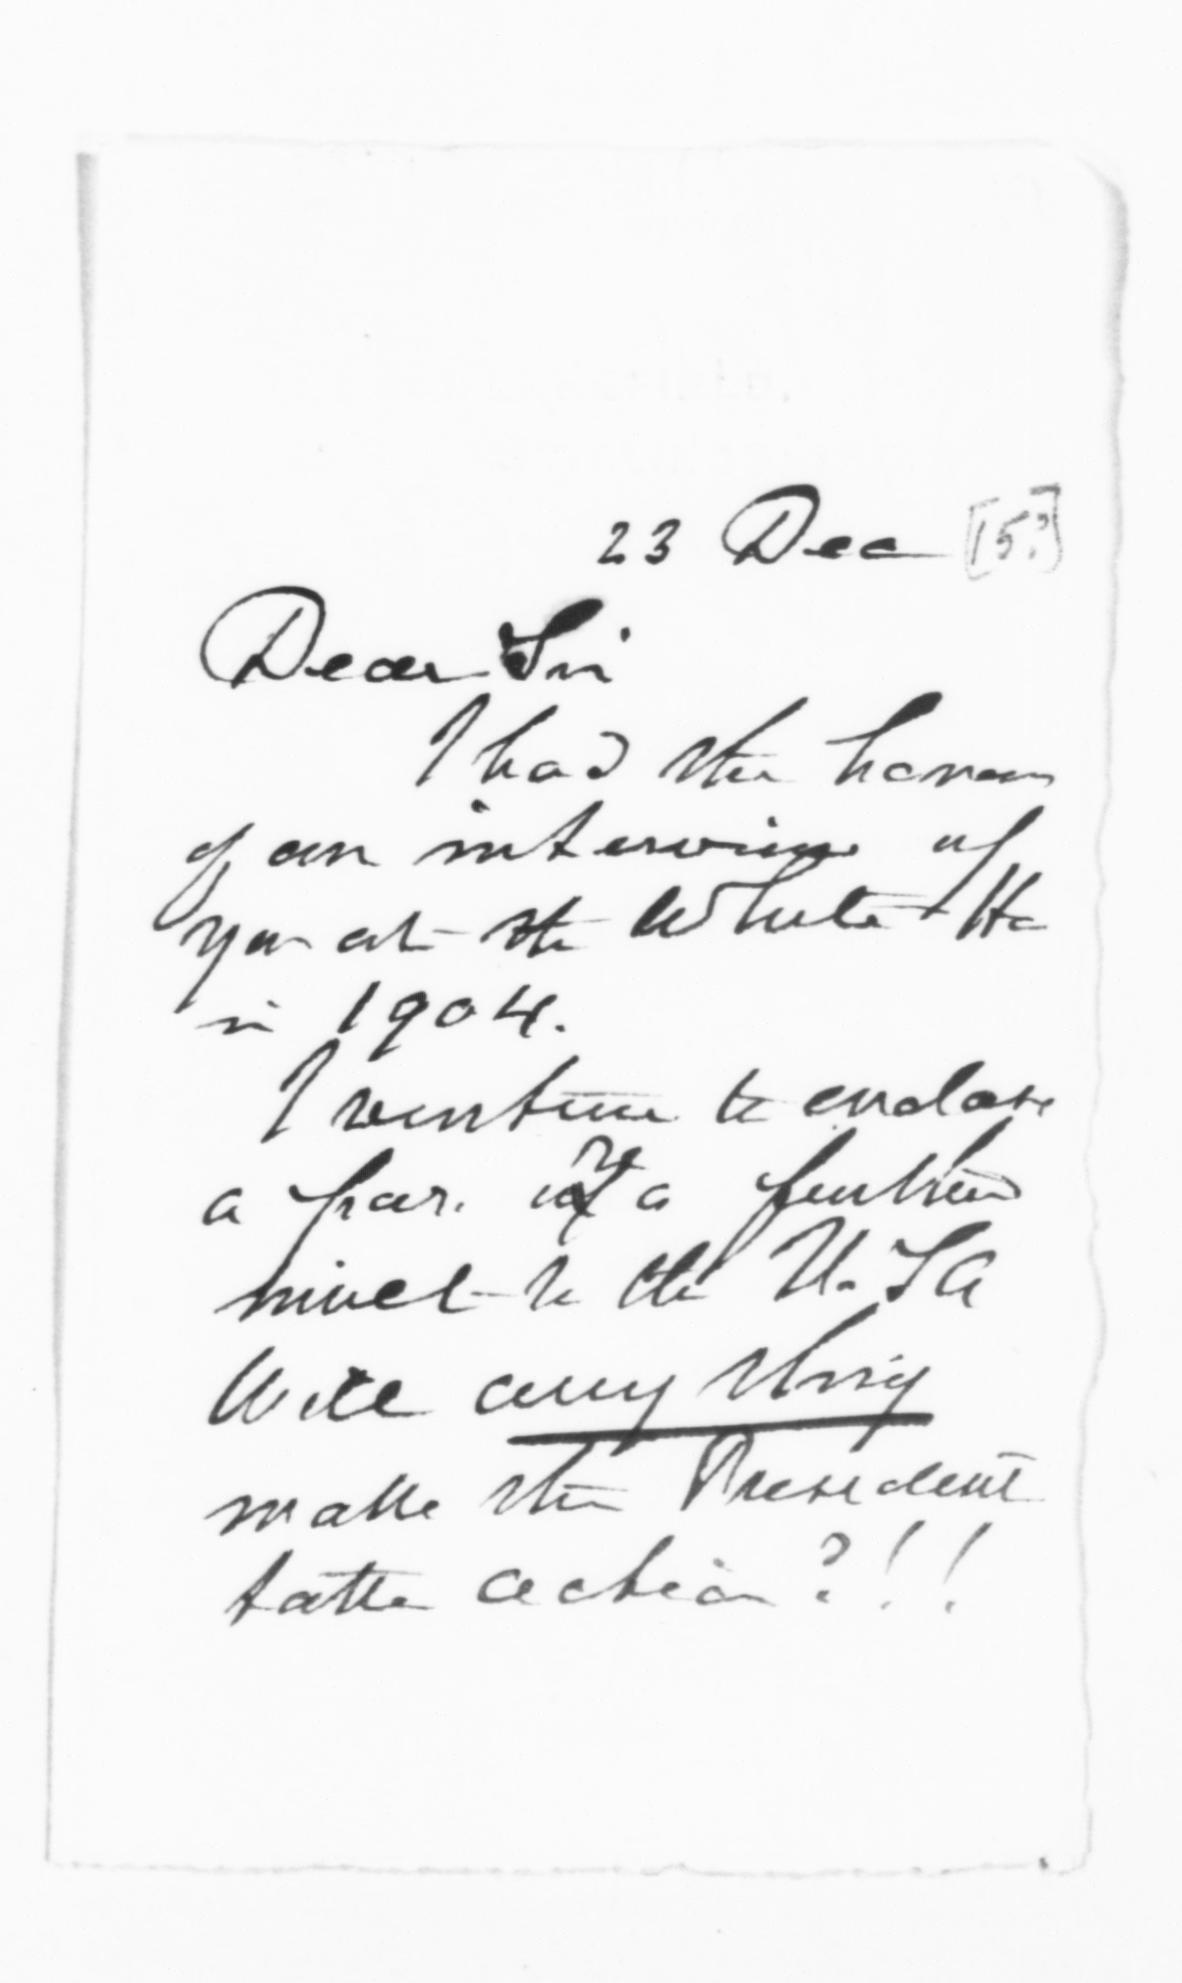 23 Dec [15?]
Dear Sir
I had the honour
of an interview of
you at the White Ho
in 1904.
I venture to enclose
a par. re a further
insult to the U.S.A
Will any thing
make the President
take action?!!